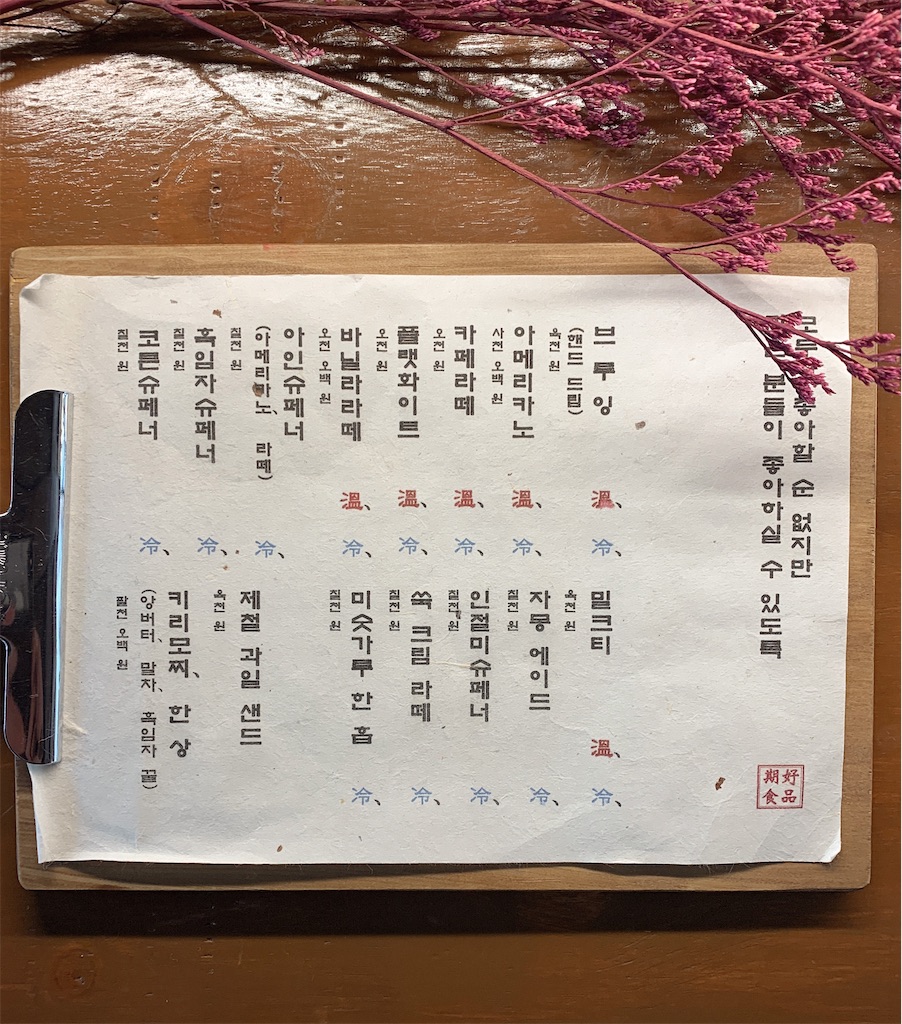 모두 좋아할 순 없지만
분들이 좋아하실 수 있도록
好期
食品
브루잉 溫、冷、
(핸드 드립)
육천 원
아메리카노 溫、冷、
사천 오백 원
카페라떼 溫、冷、
오천 원
플랫화이트 溫、冷、
오천 원
바닐라라떼 溫、冷、
오천 오백 원
아인슈페너
(아메리카노、라떼) 冷、
칠천 원
흑임자슈페너 冷、
칠천 원
코튼슈페너 冷、
칠천 원
밀크티 溫、冷、
육천 원
자몽 에이드 冷、
칠천 원
인절미슈페너 冷、
칠천 원
쑥 크림 라떼 冷、
칠천 원
미숫가루 한 홉 冷、
칠천 원
제철 과일 샌드
육천 원
키리모찌、한 상
(앙버터、말차、흑임자 꿀)
팔천 오백 원